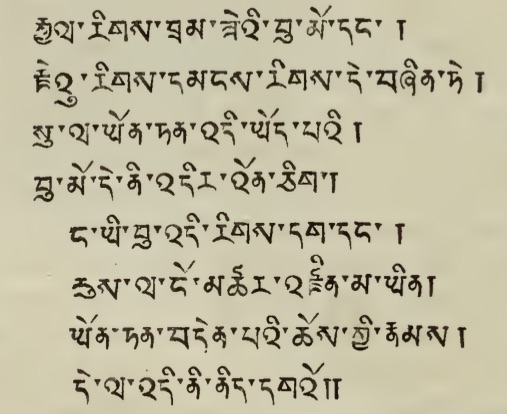 རྒྱལ་རིགས་བྲམ་ཟེའི་བུ་མོ་དང་ །
རྗེའུ་རིགས་དམངས་རིགས་དེ་བཞིན་ཏེ །
སུ་ལ་ཡོན་ཏན་འདི་ཡོད་པའི །
བུ་མོ་དེ་ནི་འདིར་འོན་ཅིག །
ང་ཡི་བུ་འདི་རིགས་དག་དང་ །
རུས་ལ་ངོ་མཚར་འཛིན་མ་ཡིན །
ཡོན་ཏན་བདེན་པའི་ཆོས་ཀྱི་རྣམས །
དེ་ལ་འདི་ནི་ནིད་དགའོ།།